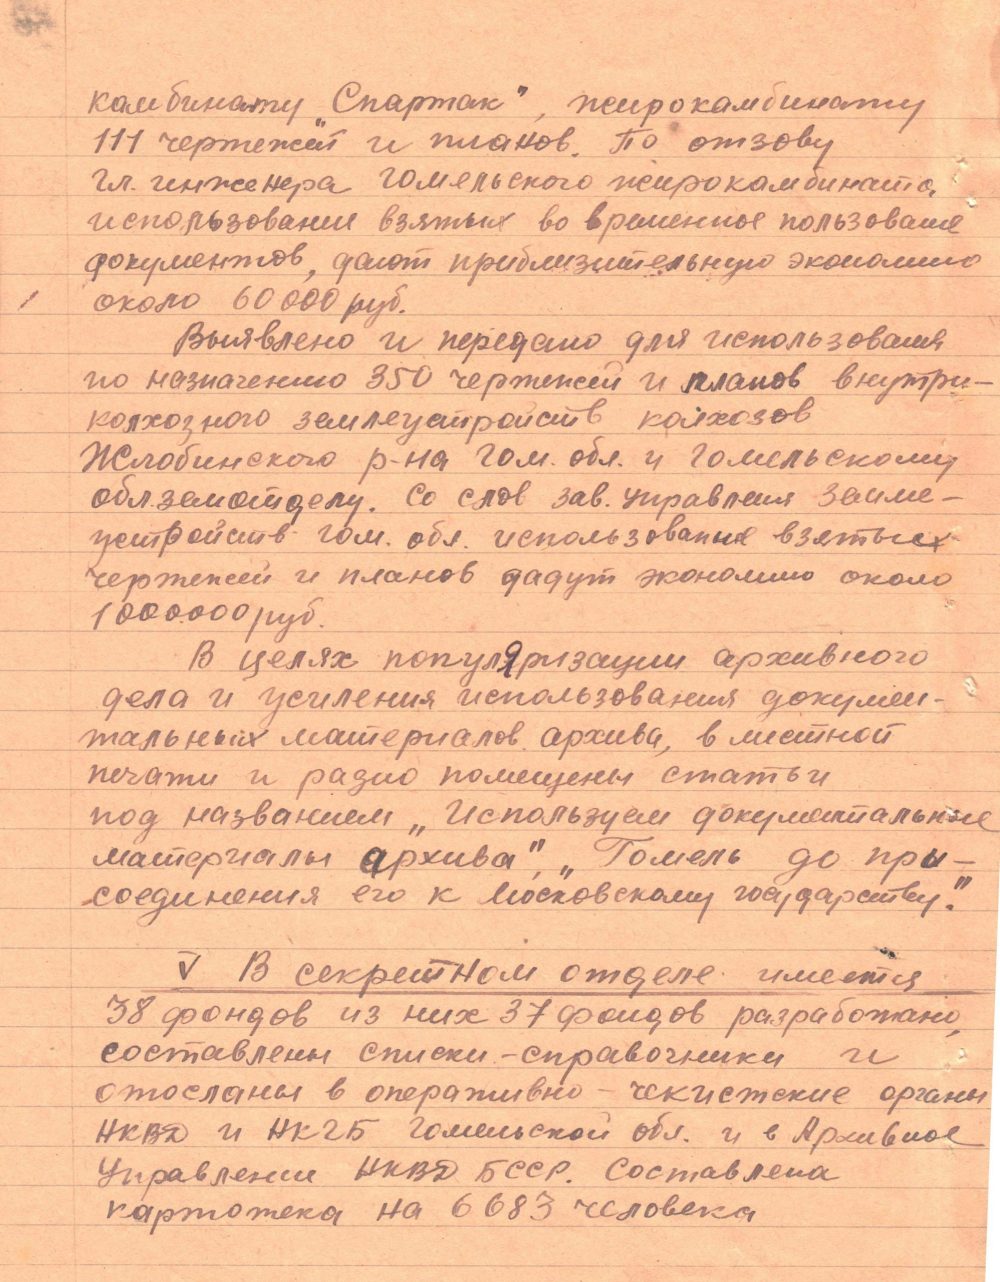 комбинату „Спартак", жирокомбинату
111 чертежей и планов. По отзову
гл. инженера Гомельского жирокомбината,
использование взятых во временное пользование
документов, дают приблизительную экономию
около 60000 руб.
Выявлено и передано для использования
по назначению 350 чертежей и планов внутри-
колхозного землеустройств колхозов
Жлобинского р-на Гом. обл. и Гомельскому
облземотделу. Со слов зав. управления земле-
устройств Гом. обл. использование взятых
чертежей и планов дадут экономию около
1000.000 руб.
В целях популяризации архивного
дела и усиления использования докумен-
тальных материалов архива, в местной
печати и радио помещены статьи
под названием „Используем документальные
материалы архива", „Гомель до при-
соединения его к Московскому государству."
V В секретном отделе имеется
38 фондов из них 37 фондов разработано,
составлены списки-справочники и
отосланы в оперативно-чекистские органы
НКВД и НКГБ Гомельской обл. и в Архивное
Управление НКВД БССР. Составлена
картотека на 6683 человека